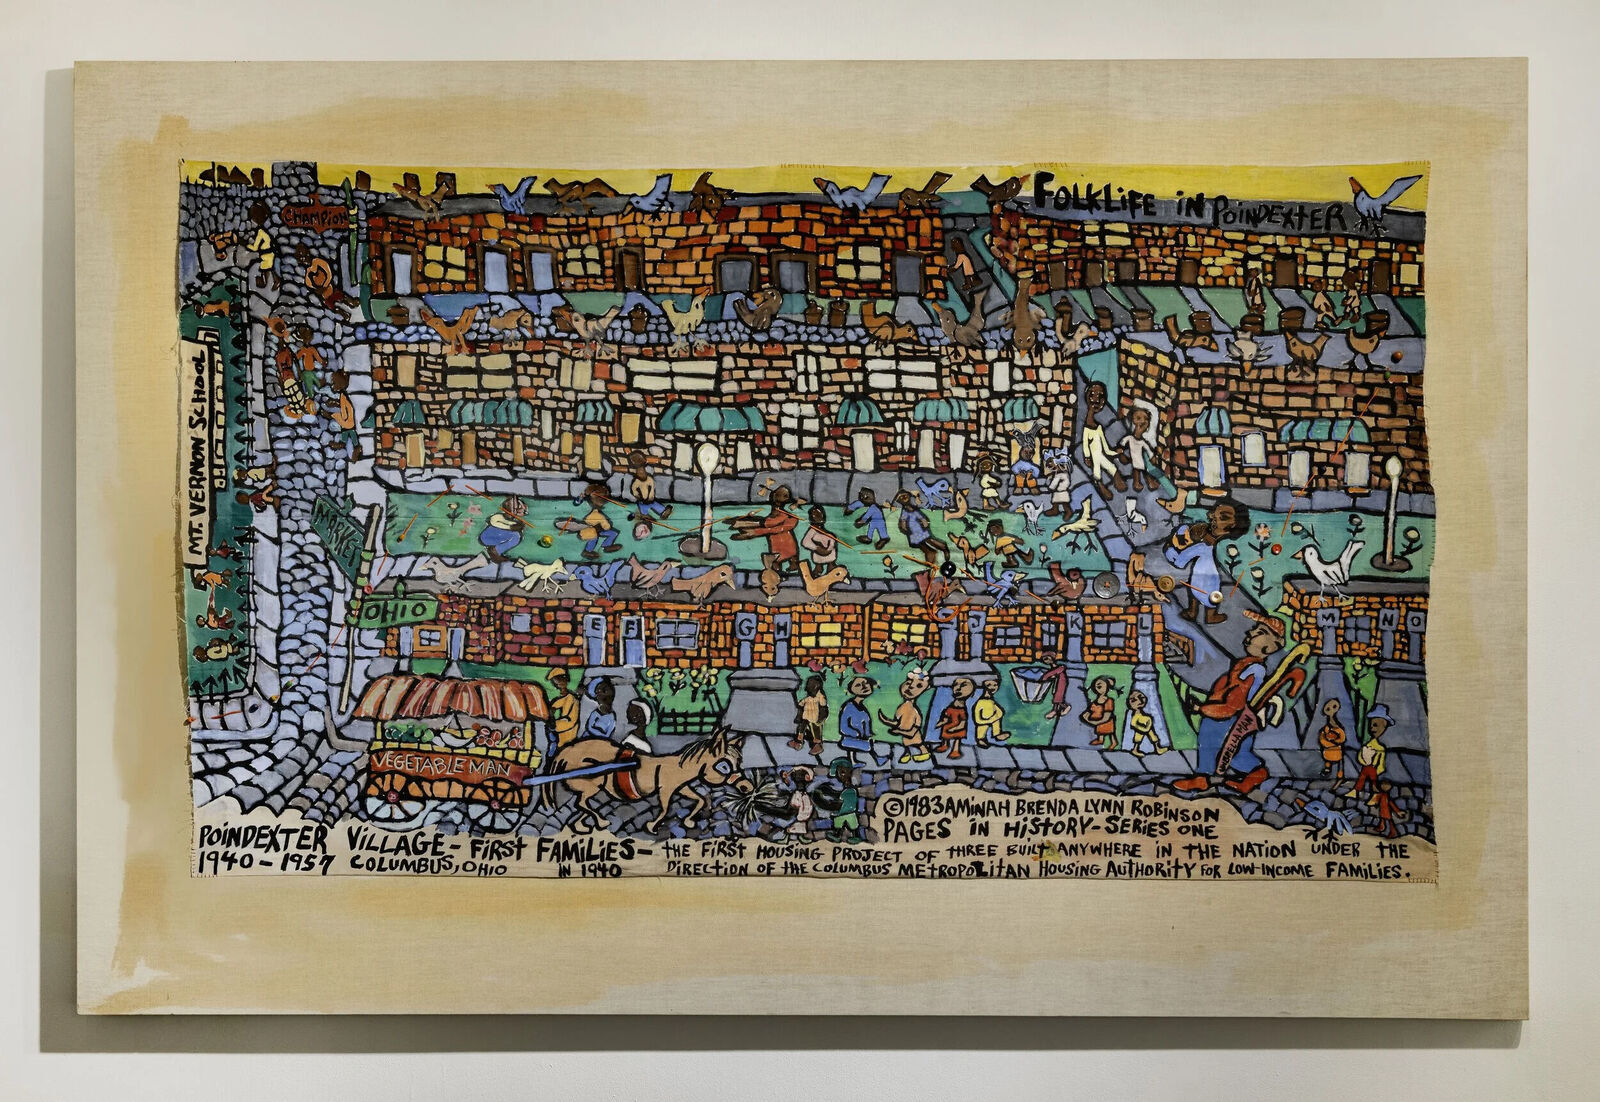 FOLKLIFE IN POINDEXTER
CHAMPION
MT. VERNON SCHOOL
MARKET
OHIO
E F G H J K L M N O
VEGETABLE MAN
UMBRELLA MAN
©1983 AMINAH BRENDA LYNN ROBINSON
PAGES IN HISTORY-SERIES ONE
POINDEXTER VILLAGE - FIRST FAMILIES - THE FIRST HOUSING PROJECT OF THREE BUILT ANYWHERE IN THE NATION UNDER THE
1940-1957 COLUMBUS, OHIO IN 1940 DIRECTION OF THE COLUMBUS METROPOLITAN HOUSING AUTHORITY FOR LOW-INCOME FAMILIES.